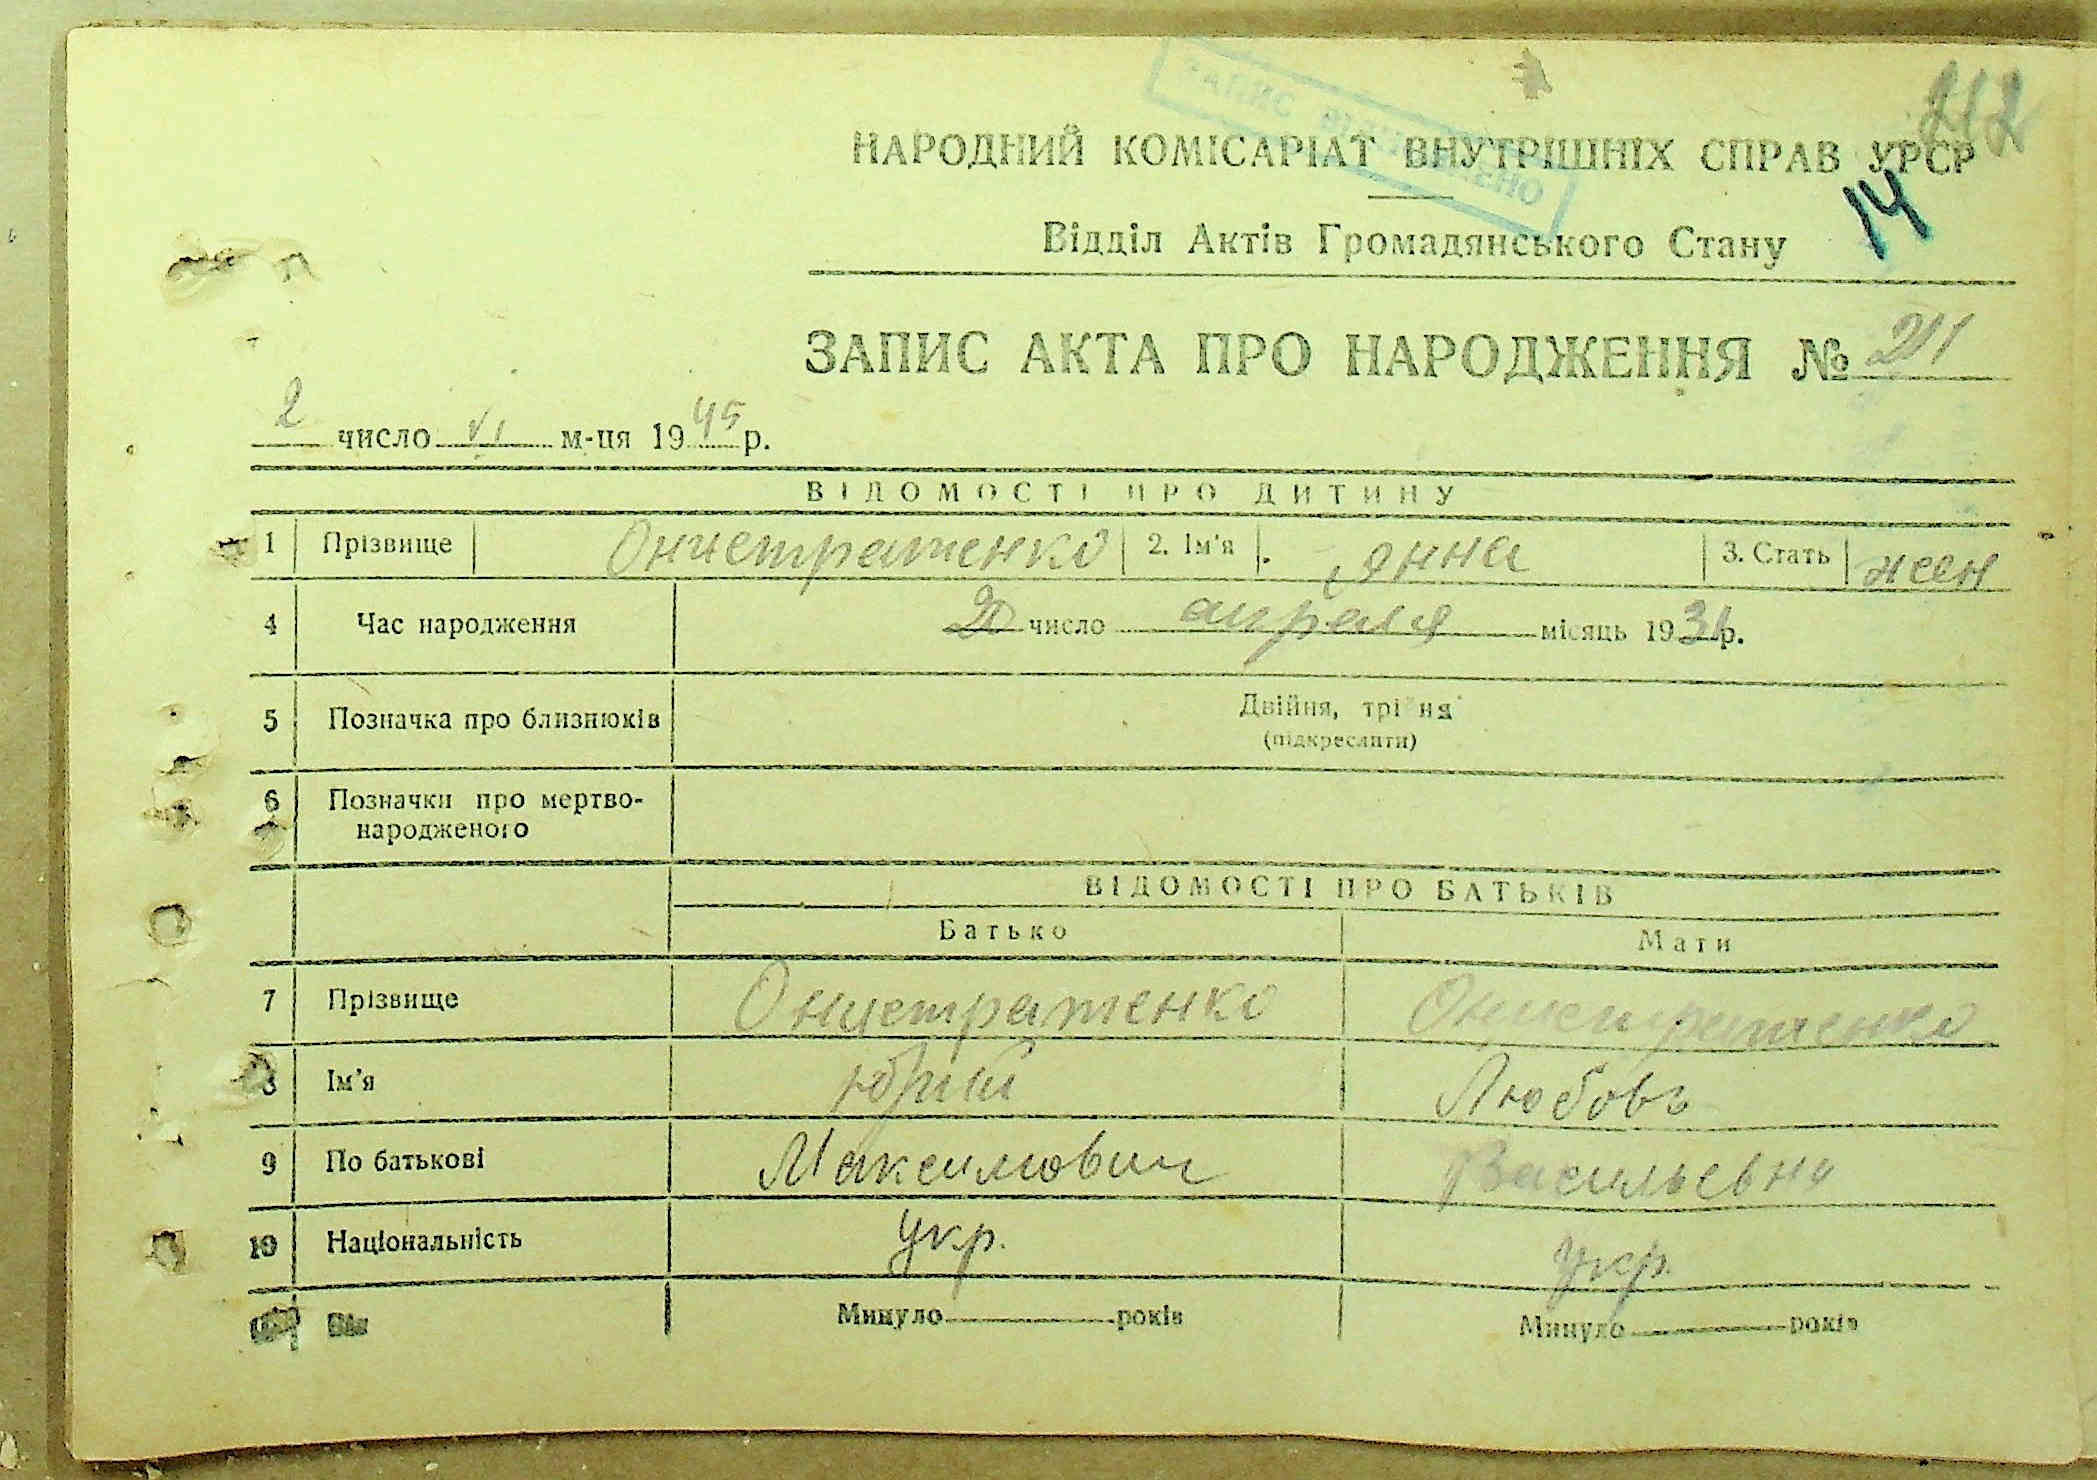 ЗАПИС ВІДНОВЛЕНО
212
НАРОДНИЙ КОМІСАРІАТ ВНУТРІШНІХ СПРАВ УРСР
14
Відділ Актів Громадянського Стану
ЗАПИС АКТА ПРО НАРОДЖЕННЯ № 211
2 число VI м-ця 1945 р.
ВІДОМОСТІ ПРО ДИТИНУ
1 Прізвище Онистратенко 2. Ім'я Анна 3. Стать жен
4 Час народження число апреля місяць 1931 р.
5 Позначка про близнюків Двійня, трійня
(підкреслити)
6 Позначки про мертво-
народженого
ВІДОМОСТІ ПРО БАТЬКІВ
Батько Мати
7 Прізвище Онистратенко Онистратенко
8 Ім'я Юрий Любовь
9 По батькові Максимович Васильевна
10 Національність укр. укр.
Вік Минуло років Минуло років